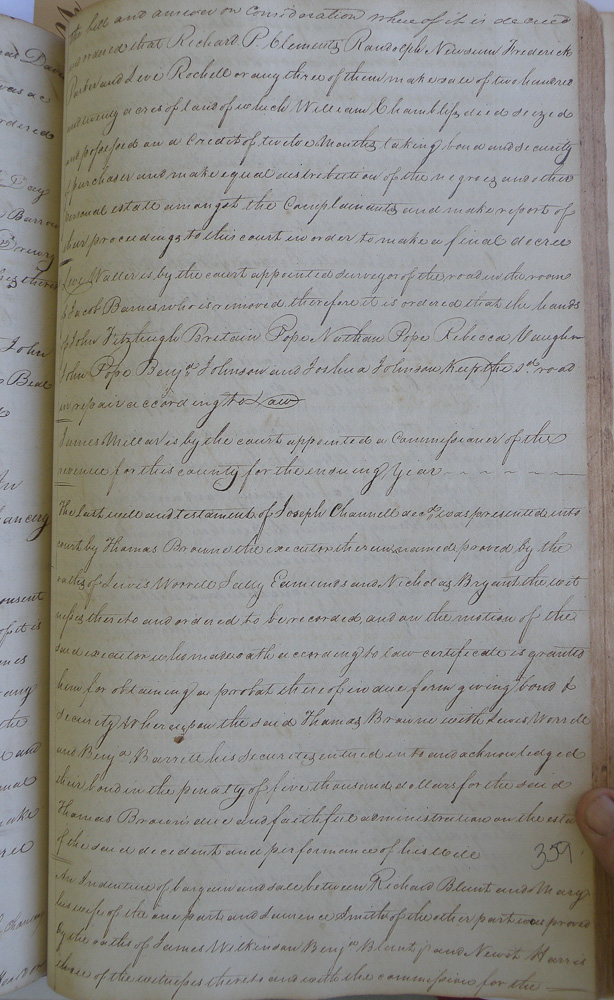 the bill and answer on consideration whereof it is decreed
and ordered that Richard P. Clements Randolph Newsum Frederick
Parker and Levi Rochell or any three of them make sale of two hundred
and twenty acres of land of which William Chambliss died seized
and possessed on a credit of twelve Months taking bond and security
of purchaser and make equal distribution of the negroes and other
personal estate amongst the Complainants and make report of
their proceedings to this court in order to make a final decree
Waller is by the court appointed surveyor of the road in the room
of Jacob Barnes who is removed therefore it is ordered that the hands
of John Fitzhugh Britain Pope Nathan Pope Rebecca Vaughn
John Pope Benjn Johnson and Joshua Johnson Keep the sd. road
in repair according to Law
James Millar is by the court appointed a Commissioner of the
revenue for this county for the ensuing Year
The last will and testament of Joseph Channell decd. was presented into
court by Thomas Browne the executor therein named proved by the
oaths of Lewis Worrell Sally Edmunds and Nicholas Bryant the wit
nesses thereto and ordered to be recorded, and on the motion of the
said executor who made oath according to law certificate is granted
him for obtaining a probat thereof in due form giving bond &
Security Whereupon the said Thomas Browne with Lewis Worrell
and Benjn Barrett his Securities entered into and acknowledged
their bond in the penalty of five thousand dollars for the said
Thomas Brown's due and faithful administration on the esta
of the said decedent and performance of his
359
An Indenture of bargain and sale between Richard Blunt and Mary
his wife of the one part and Lawrence Smith of the other part was proved
by the oaths of James Wilkinson Benjn Blunt and Newit Harris
those of the witnesses thereto and with the commission for the